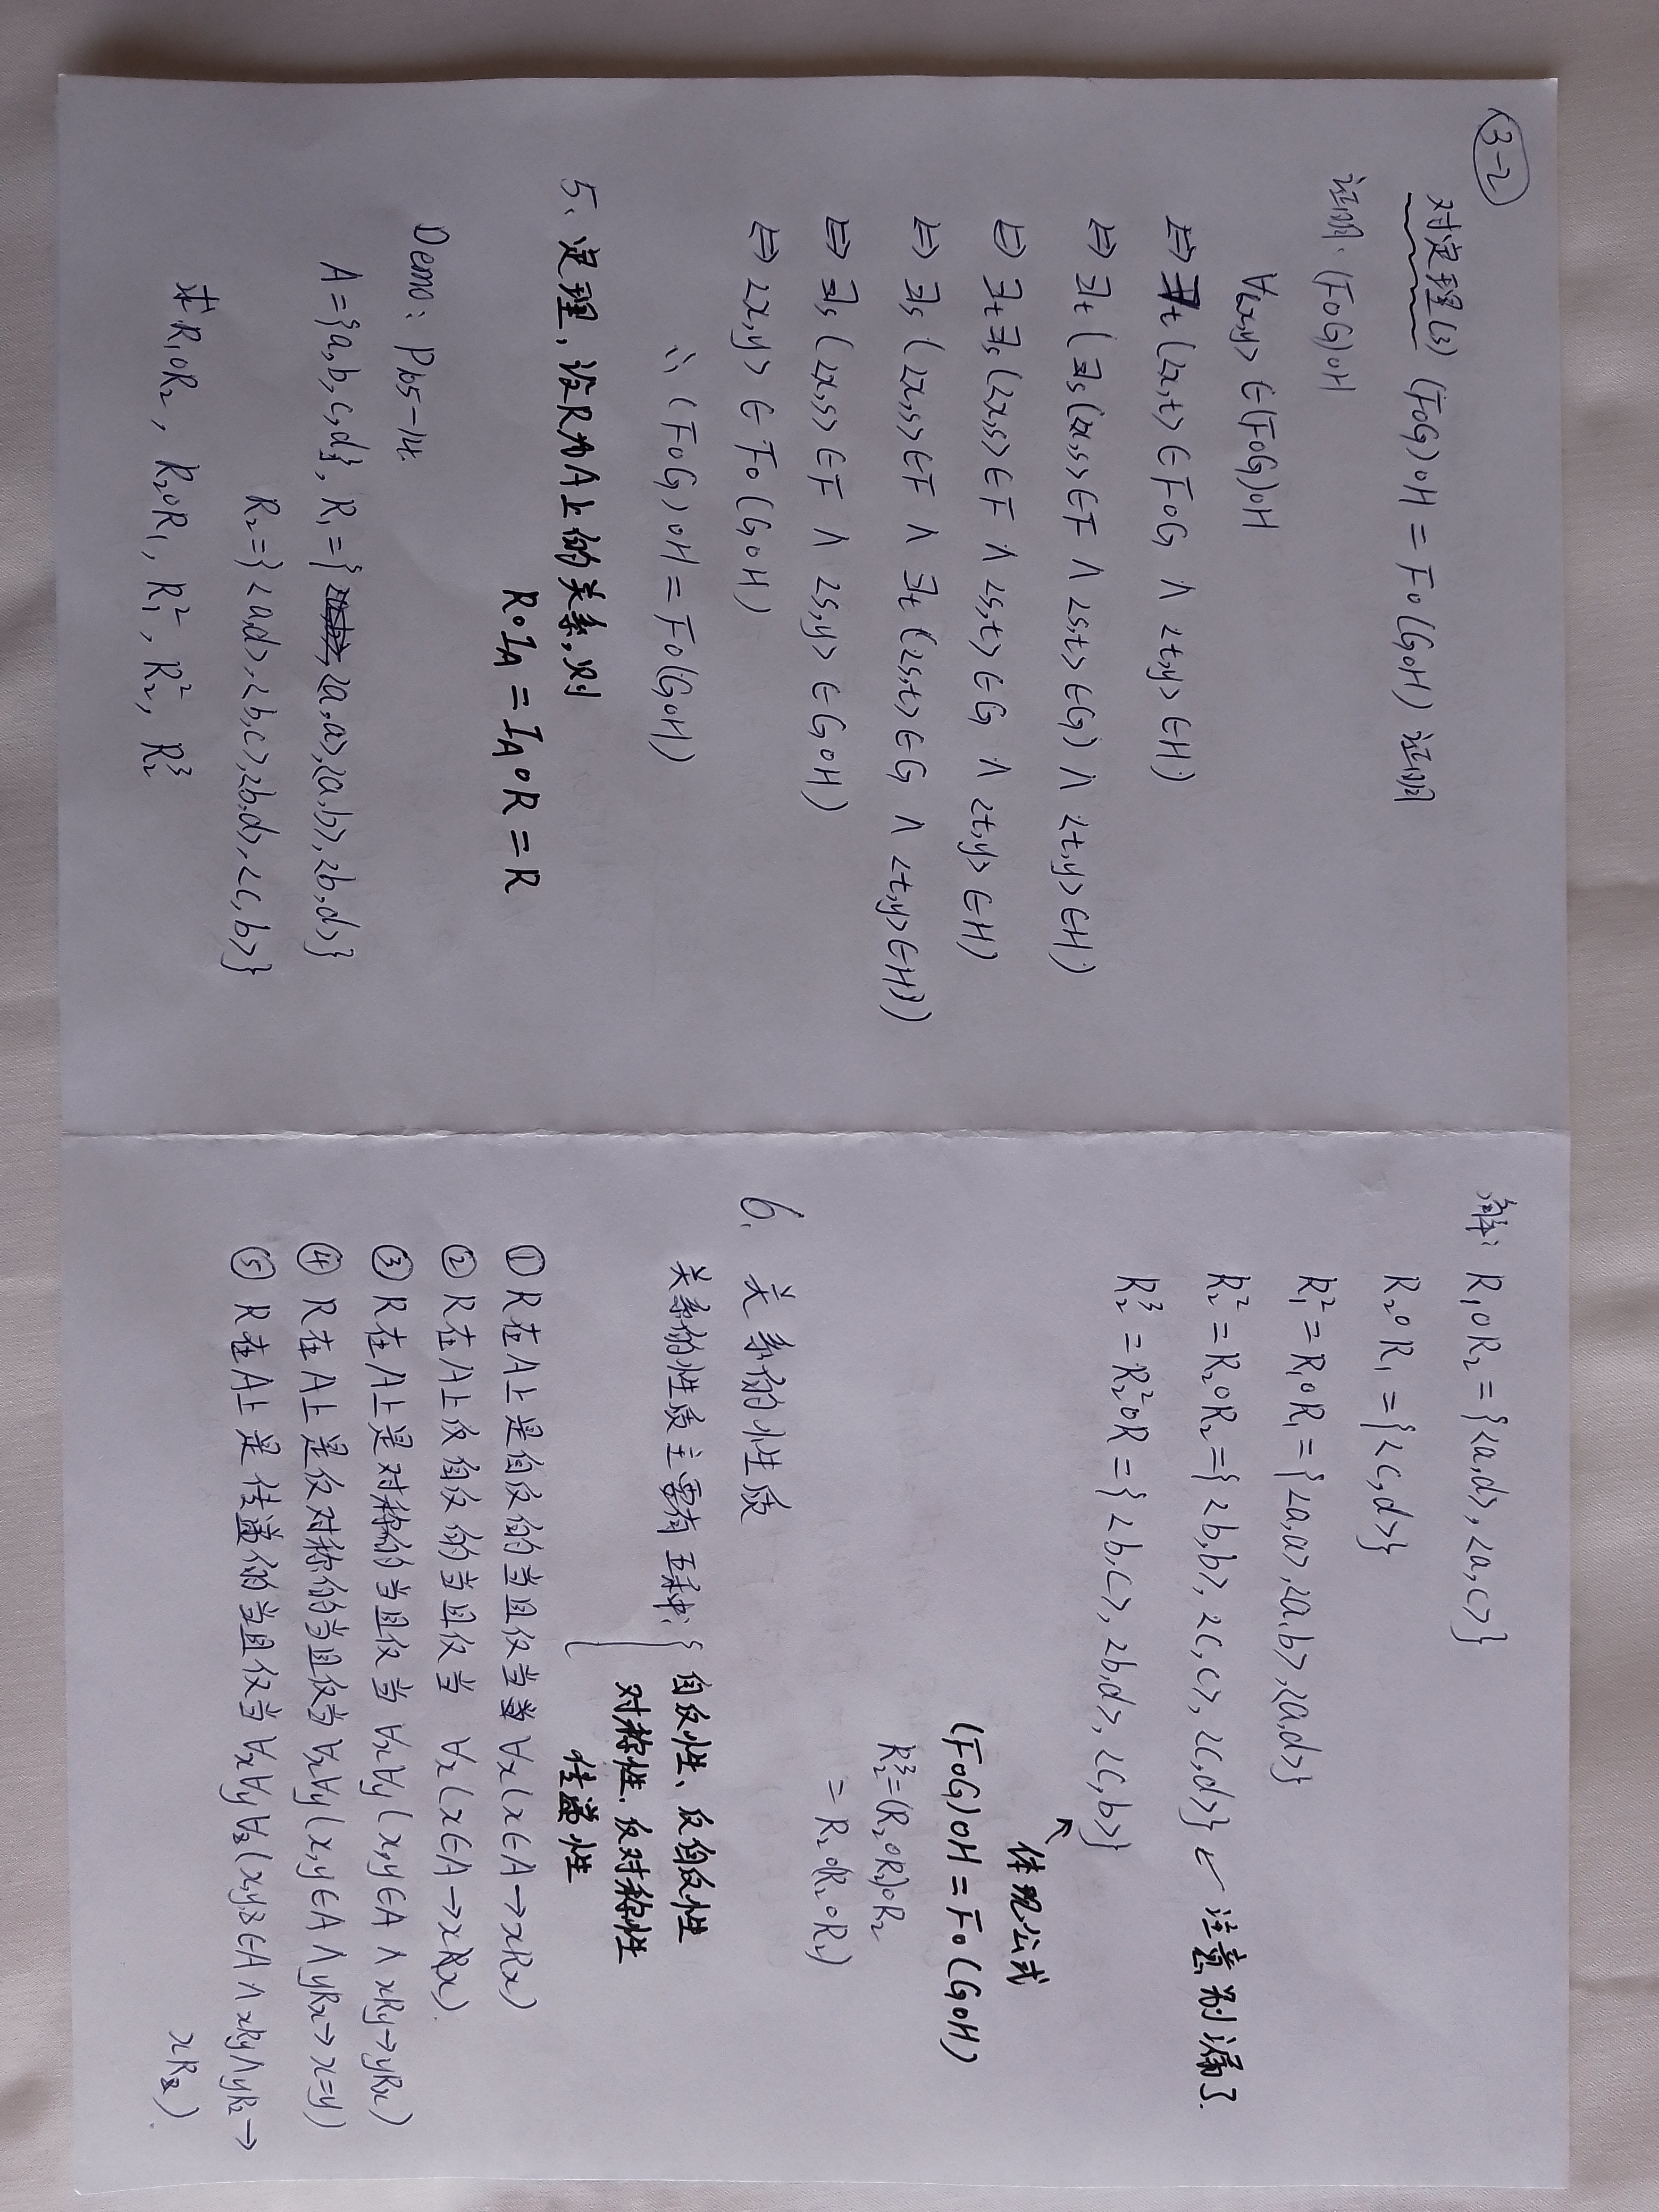 3-2
对定理(3) (F∘G)∘H = F∘(G∘H) 证明
证明: (F∘G)∘H
∀<x,y> ∈(F∘G)∘H
⇔ ∃t (<x,t> ∈ F∘G ∧ <t,y> ∈H)
⇔ ∃t (∃s (<x,s> ∈F ∧ <s,t> ∈G) ∧ <t,y> ∈H)
⇔ ∃t∃s (<x,s> ∈ F ∧ <s,t> ∈G ∧ <t,y> ∈H)
⇔ ∃s (<x,s> ∈F ∧ ∃t (<s,t> ∈G ∧ <t,y> ∈H))
⇔ ∃s (<x,s> ∈F ∧ <s,y> ∈ G∘H)
⇔ <x,y> ∈ F∘(G∘H)
∴ (F∘G)∘H = F∘(G∘H)
5、定理，设R为A上的关系，则
R∘I_A = I_A∘R = R
Demo: P105-14.
A={a,b,c,d}, R₁={<a,a>,<a,b>,<b,d>}
R₂={<a,d>,<b,c>,<b,d>,<c,b>}
求R₁∘R₂, R₂∘R₁, R₁², R₂², R₂³
解: R₁∘R₂ = {<a,d>, <a,c>}
R₂∘R₁ = {<c,d>}
R₁² = R₁∘R₁ = {<a,a>,<a,b>,<a,d>}
R₂² = R₂∘R₂ ={<b,b>, <c,c>, <c,d>} ← 注意别漏了.
R₂³ = R₂²∘R = {<b,c>, <b,d>, <c,b>}
↖
体现公式
(F∘G)∘H = F∘(G∘H)
R₂³=(R₂∘R₂)∘R₂
= R₂∘(R₂∘R₂)
6. 关系的性质
关系的性质主要有五种: { 自反性、反自反性
对称性、反对称性
传递性
① R在A上是自反的当且仅当 ∀x(x∈A→xRx)
② R在A上反自反的当且仅当 ∀x(x∈A→xR̸x).
③ R在A上是对称的当且仅当 ∀x∀y(x,y∈A ∧ xRy→yRx)
④ R在A上是反对称的当且仅当 ∀x∀y(x,y∈A ∧ yRx→ x=y)
⑤ R在A上是传递的当且仅当 ∀x∀y∀z(x,y,z∈A ∧ xRy∧yRz→
xRz).